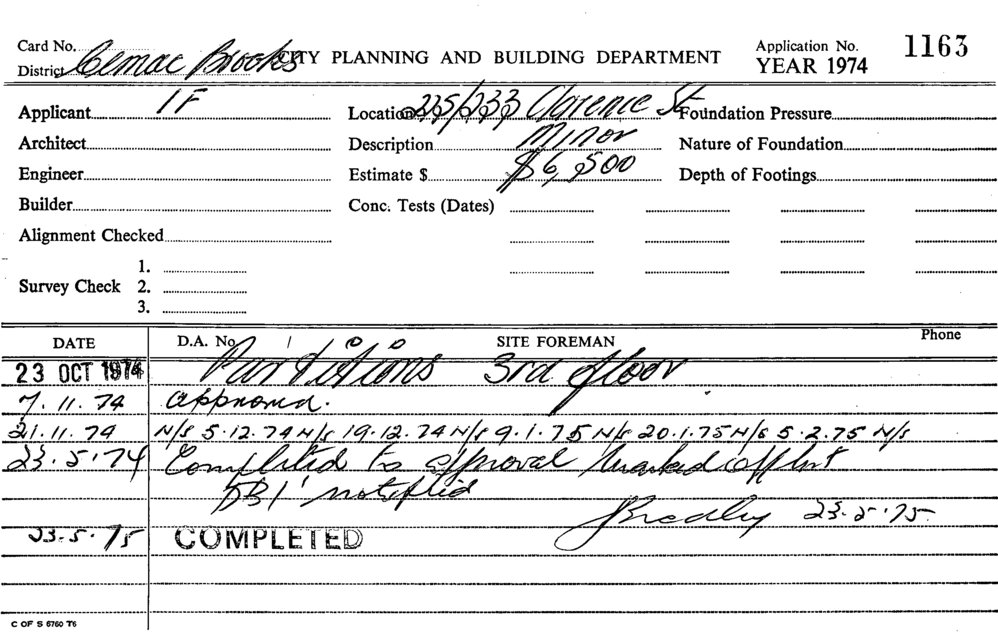 Card No. Cemac Brooks CITY PLANNING AND BUILDING DEPARTMENT Application No. 1163
District YEAR 1974
Applicant 1F Location 225/233 Clarence St Foundation Pressure
Architect Description Minor Nature of Foundation
Engineer Estimate $ $6,500 Depth of Footings
Builder Conc. Tests (Dates)
Alignment Checked
1.
Survey Check 2.
3.
DATE D.A. No. SITE FOREMAN Phone
23 OCT 1974 Partitions 3rd floor
7.11.74 approved.
21.11.74 N/S 5.12.74 N/S 19.12.74 N/S 9.1.75 N/S 20.1.75 N/S 5.2.75 N/S
23.5.74 Completed to approval
DBI notified
Bradley 23.5.75
23.5.75 COMPLETED
C OF S 6760 T6